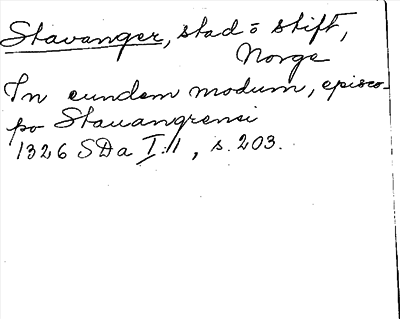 Stavanger, stad o stift,
Norge
In eundem modum, episco-
po Stauangrensi
1326 SDa I:1, s. 203.